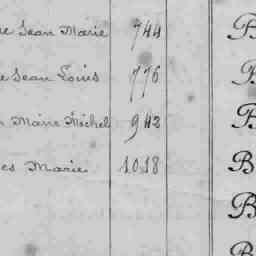 Jean Marie 744 B
e Jean Louis 776 B
Marie Michel 942 B
es Marie 1018 B
B
B